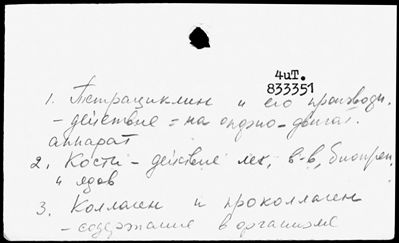 4иТ.
833351
1. Тетрациклин и его производн.
- действие = на опорно-двигат.
аппарат
2. Кости - действие лек. в-в, биопреп.
и ядов
3. Коллаген и проколлаген
- содержание в организме